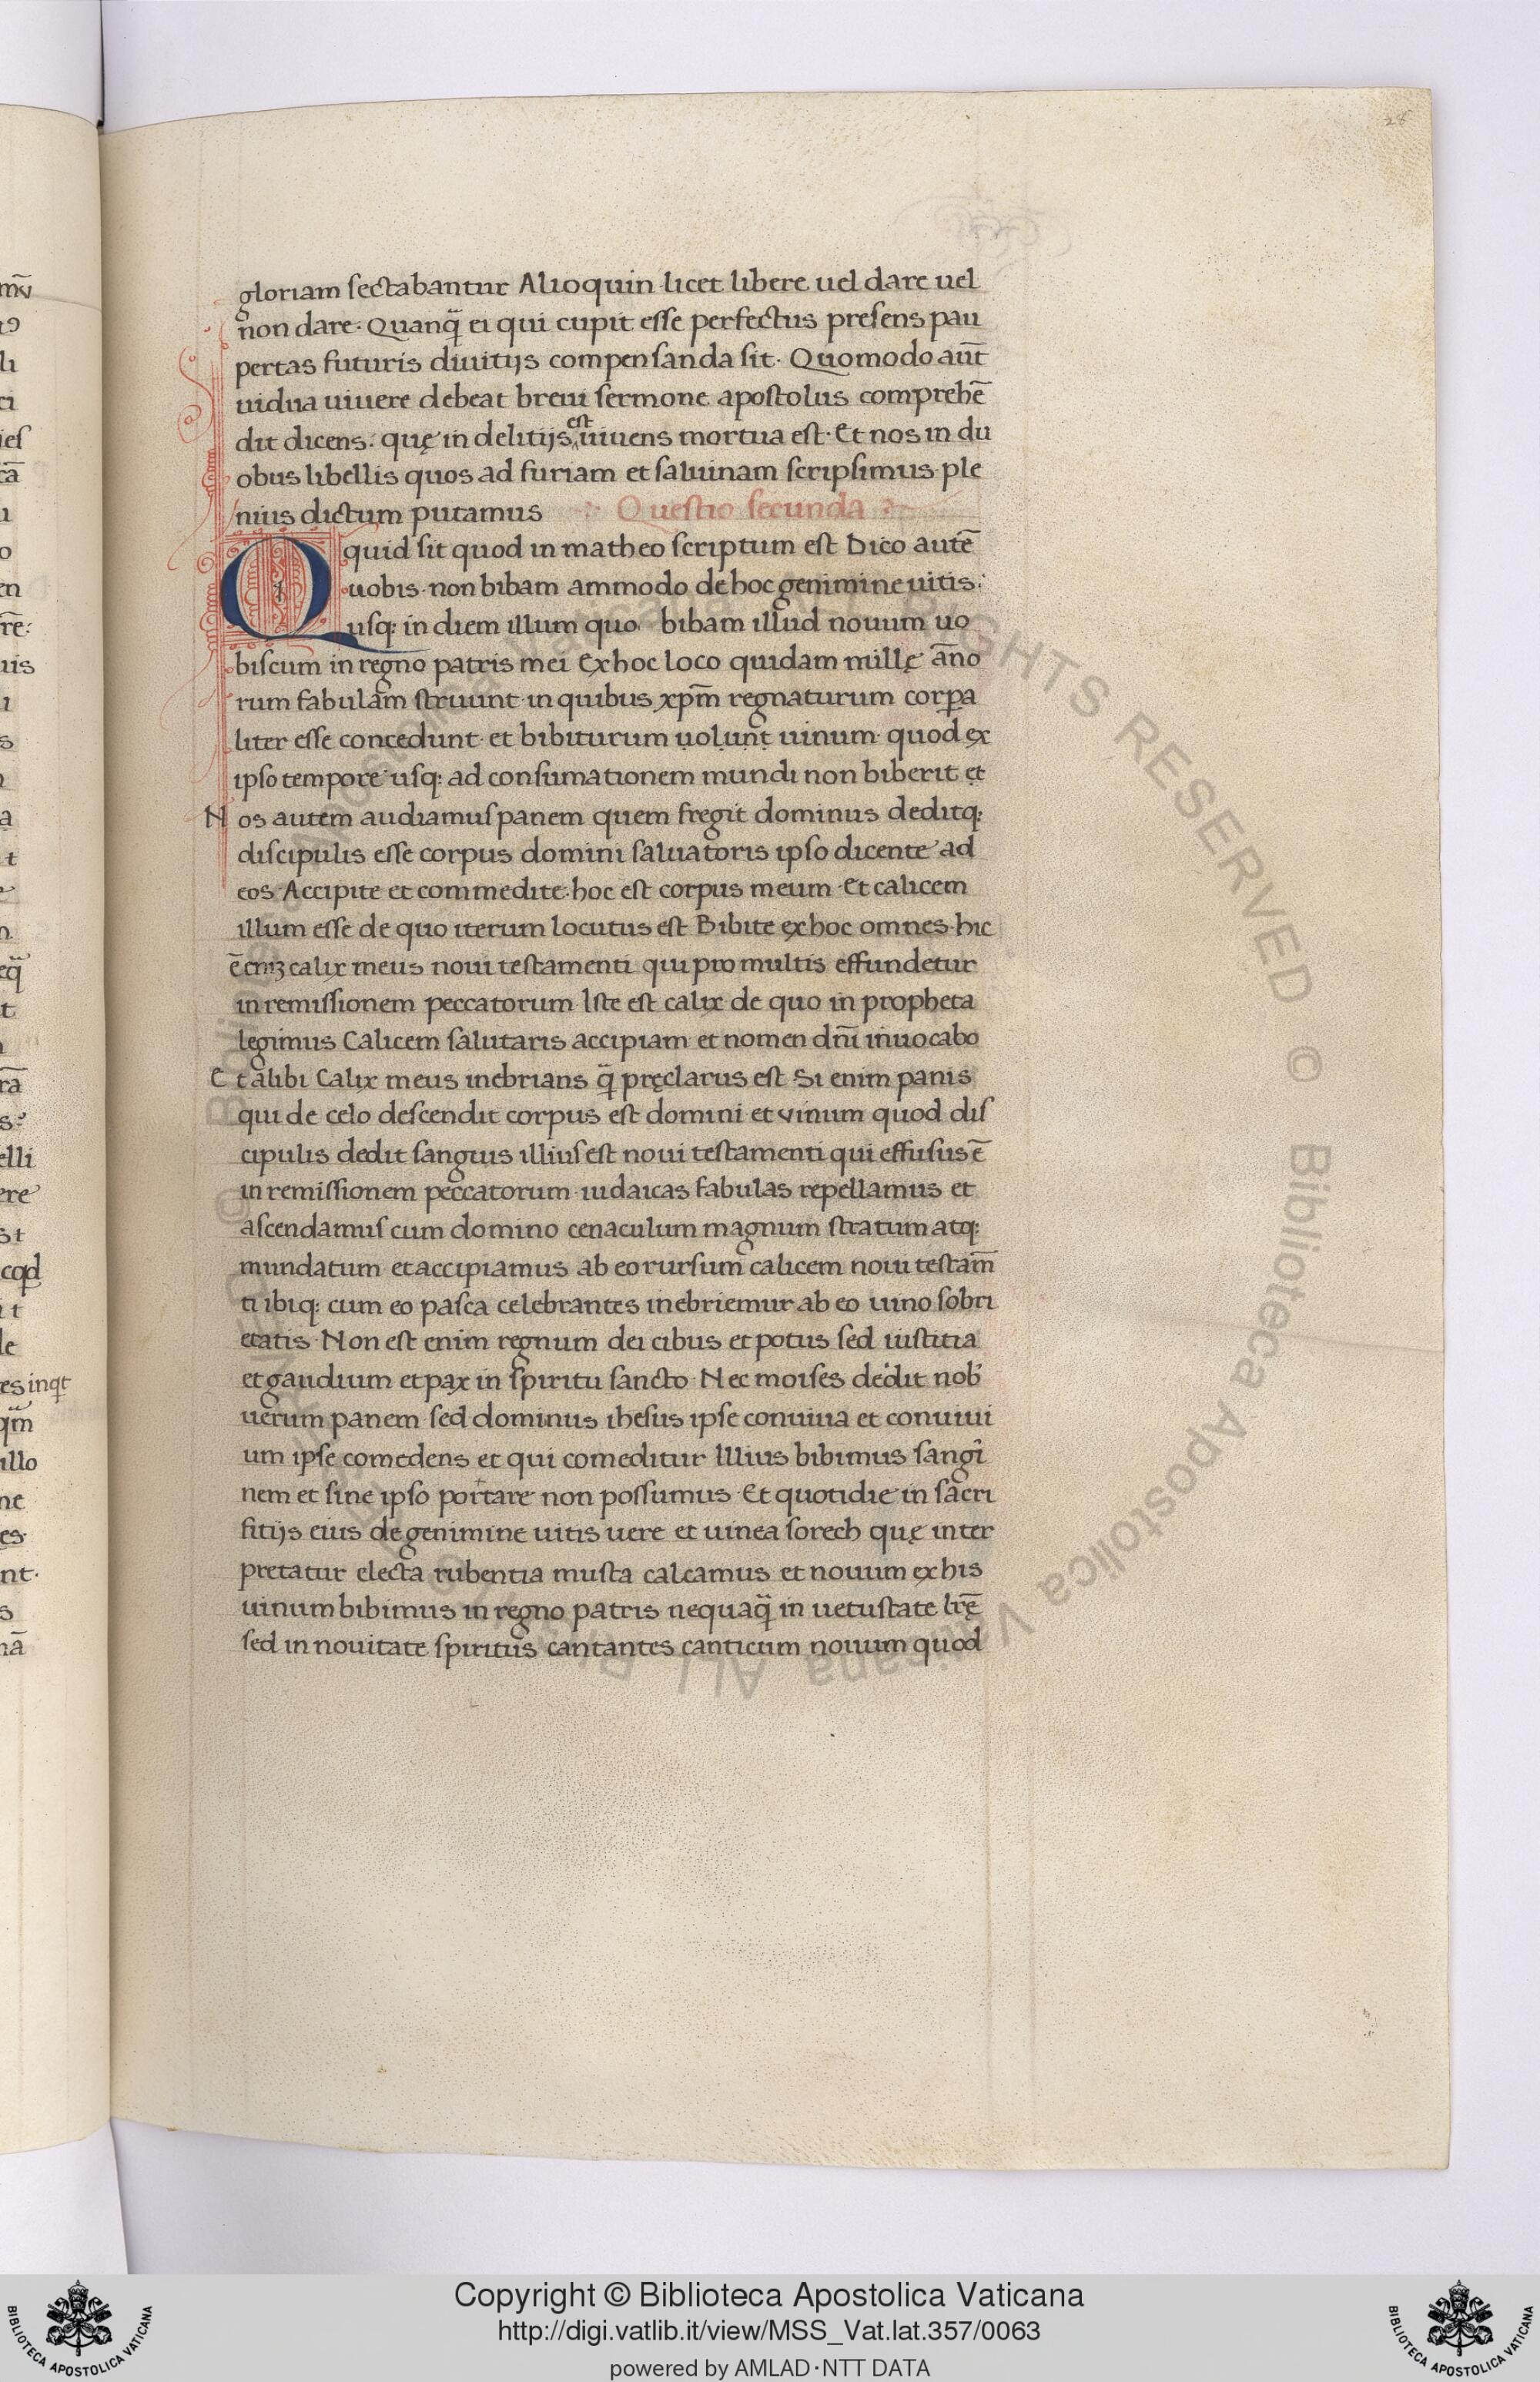 28
gloriam sectabantur Alioquin licet libere uel dare uel
non dare· Quanq̃ ei qui cupit esse perfectus presens pau
pertas futuris diuitijs compensanda sit· Quomodo aut̃
uidua uiuere debeat breui sermone apostolus comprehẽ
dit dicens: quę in delitijs est uiuens mortua est· Et nos in du
obus libellis quos ad furiam et saluinam scripsimus ple
nius dictum putamus Questio secunda
Q quid sit quod in matheo scriptum est Dico autẽ
uobis· non bibam ammodo de hoc genimine uitis:
usq: in diem illum quo bibam illud nouum uo
biscum in regno patris mei Ex hoc loco quidam millę ãno
rum fabulam struunt in quibus xp̃m regnaturum corpa
liter esse concedunt et bibiturum uolunt uinum quod ex
ipso tempore usq: ad consumationem mundi non biberit et
Nos autem audiamus panem quem fregit dominus deditq:
discipulis esse corpus domini saluatoris ipso dicente ad
eos Accipite et commedite· hoc est corpus meum Et calicem
illum esse de quo iterum locutus est Bibite ex hoc omnes· hic
ẽ calix meus noui testamenti qui pro multis effundetur
in remissionem peccatorum Iste est calix de quo in propheta
legimus Calicem salutaris accipiam et nomen dñi inuocabo
Et alibi Calix meus inebrians q̃ pręclarus est Si enim panis
qui de celo descendit corpus est domini et vinum quod dis
cipulis dedit sanguis illius est noui testamenti qui effusus ẽ
in remissionem peccatorum iudaicas fabulas repellamus et
ascendamus cum domino cenaculum magnum stratum atq:
mundatum et accipiamus ab eo rursum calicem noui testam̃
ti ibiq: cum eo pasca celebrantes inebriemur ab eo uino sobri
etatis· Non est enim regnum dei cibus et potus sed iustitia
et gaudium et pax in spiritu sancto Nec moises dedit nob'
uerum panem sed dominus ihesus ipse conuiua et conuiui
um ipse comedens et qui comeditur Illius bibimus sangi
nem et sine ipso portare non possumus Et quotidie in sacri
fitijs eius de genimine uitis uere et uinea sorech quę inter
pretatur electa rubentia musta calcamus et nouum ex his
uinum bibimus in regno patris nequaq̃ in uetustate lr̃ę
sed in nouitate spiritus cantantes canticum nouum quod
© Biblioteca Apostolica Vaticana ALL RIGHTS RESERVED
Copyright © Biblioteca Apostolica Vaticana
http://digi.vatlib.it/view/MSS_Vat.lat.357/0063
powered by AMLAD·NTT DATA
BIBLIOTECA APOSTOLICA VATICANA
BIBLIOTECA APOSTOLICA VATICANA